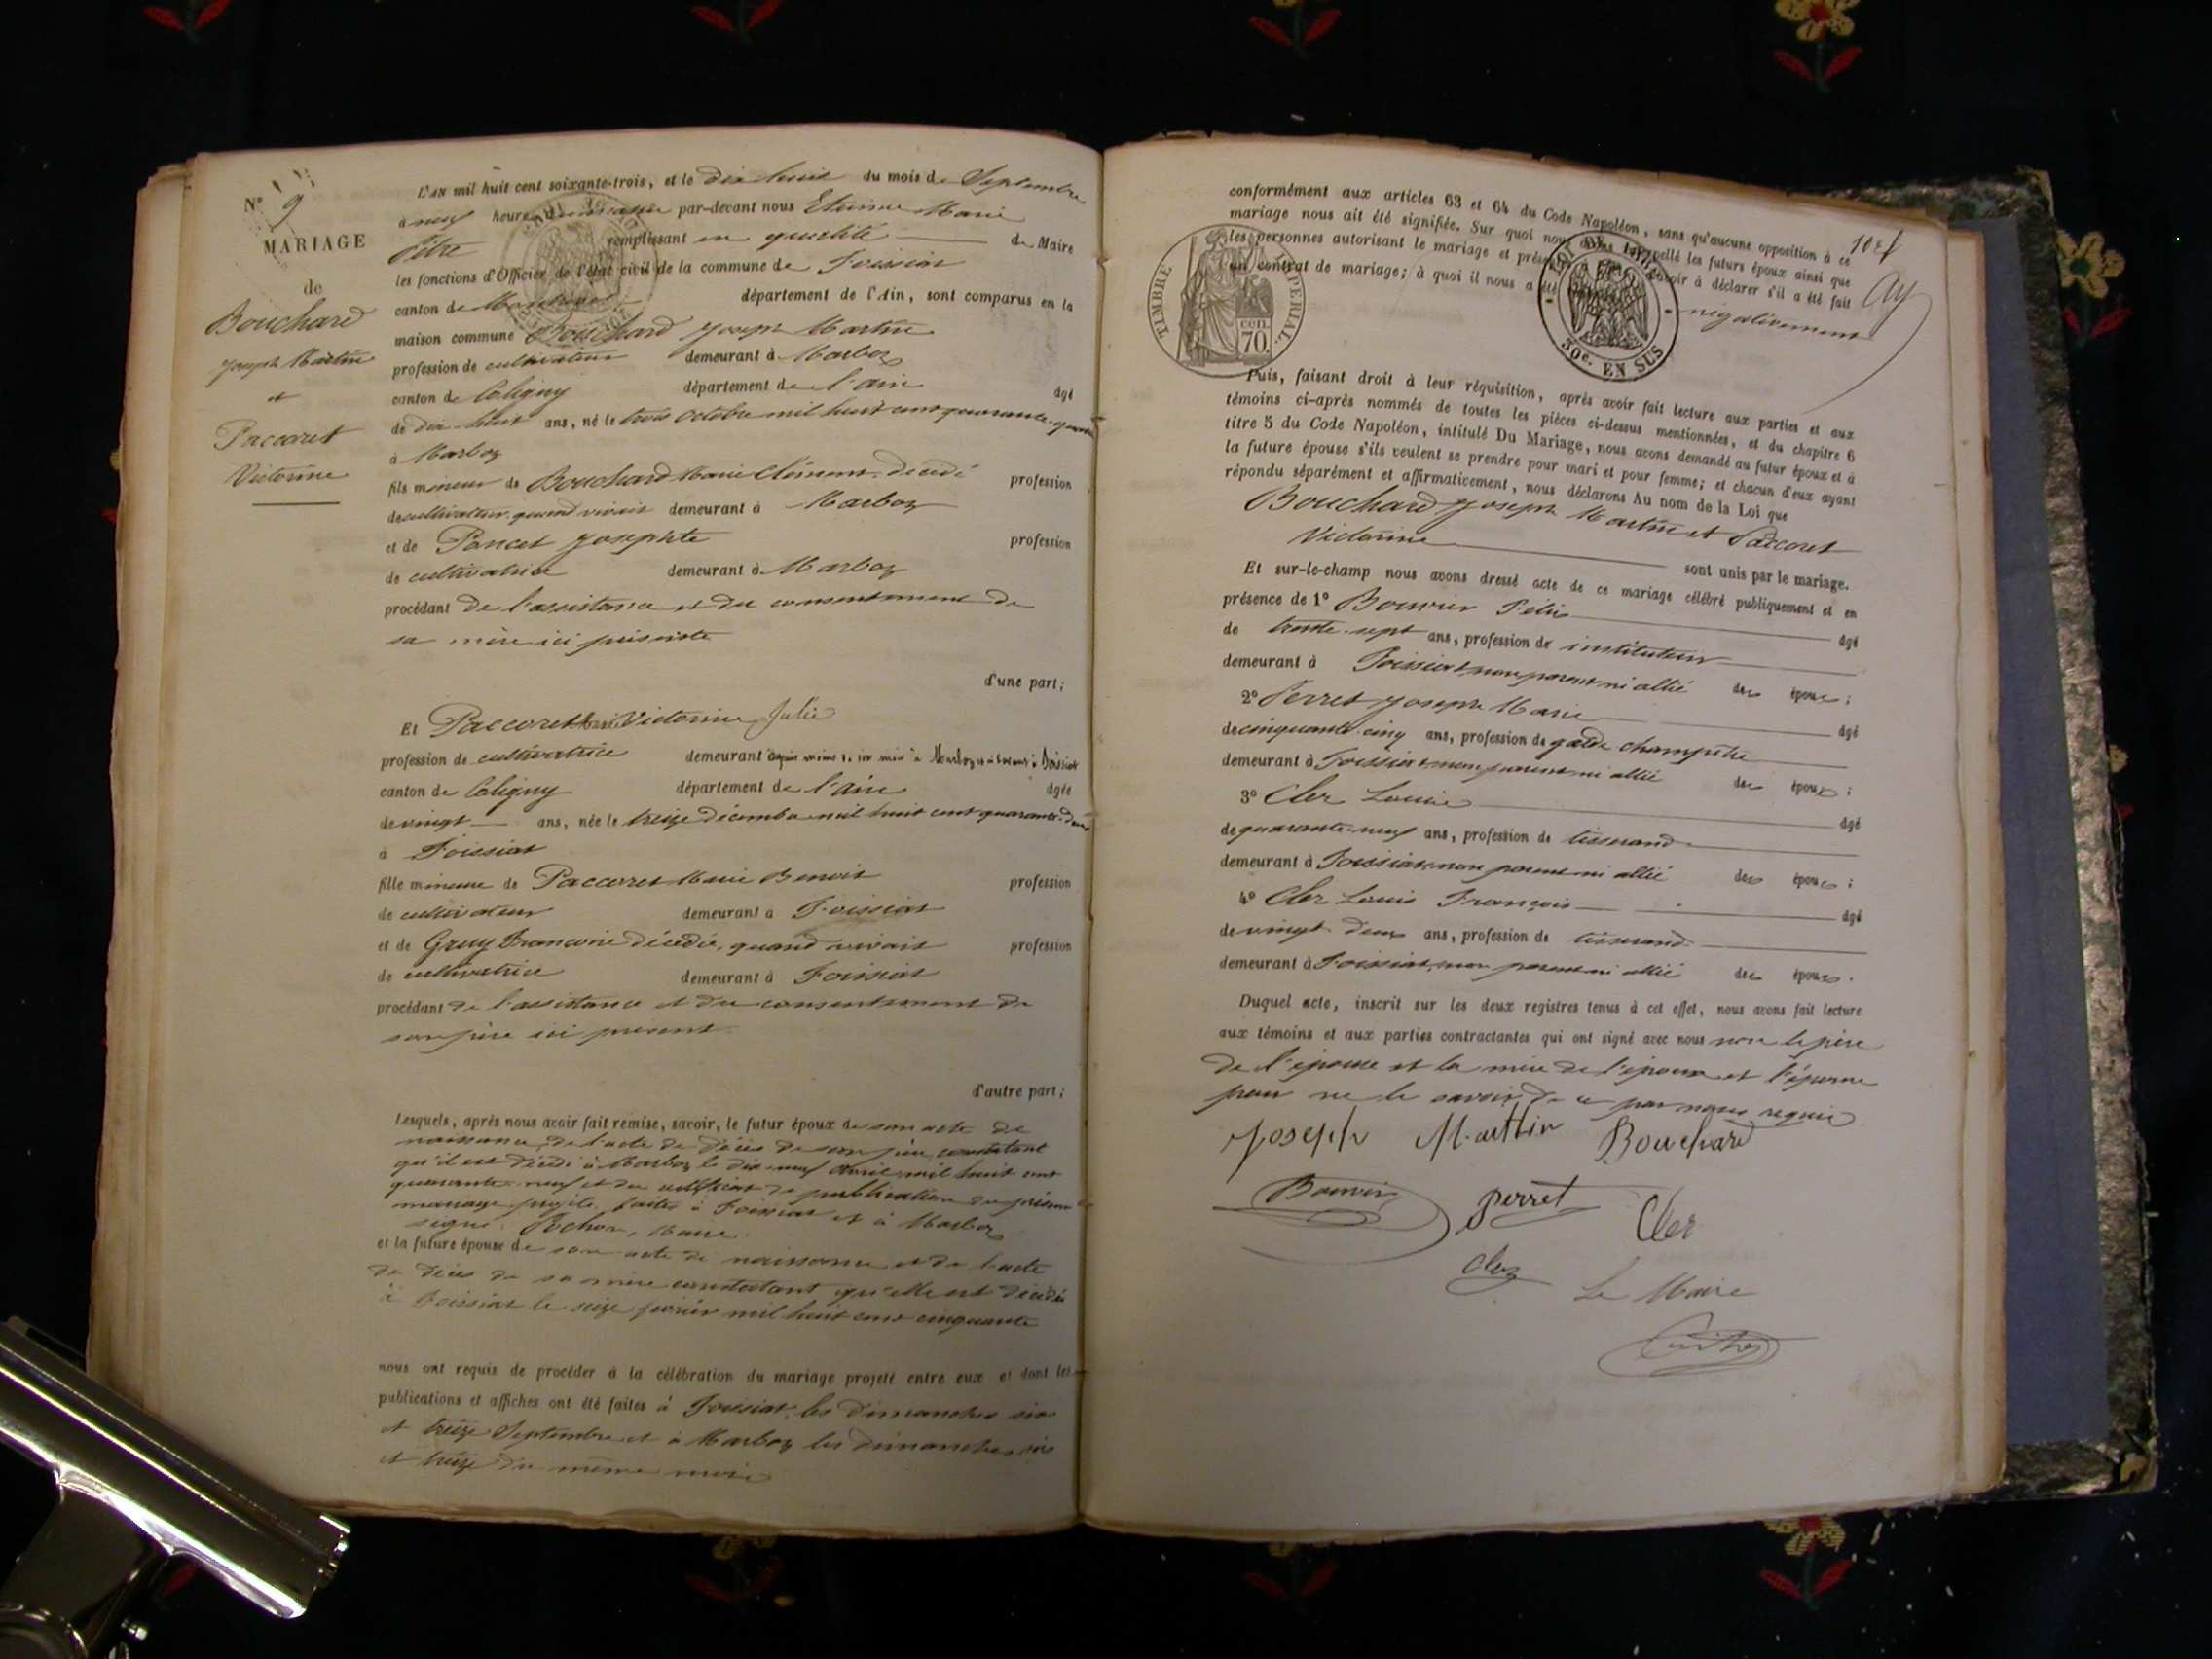 N° 9
MARIAGE
de
Bouchard
Joseph Martin
et
Paccoret
Victorine
L'AN mil huit cent soixante-trois, et le dix huit du mois de Septembre
à neuf heures du matin par-devant nous Etienne Marie
remplissant en qualité de Maire
les fonctions d'Officier de l'état civil de la commune de Foissiat
canton de département de l'Ain, sont comparus en la
maison commune Bouchard Joseph Martin
profession de cultivateur demeurant à Marboz
canton de Coligny département de l'ain âgé
de dix huit ans, né le trois octobre mil huit cent quarante-quatre
à Marboz
fils mineur de Bouchard Marie Clément, décédé profession
de cultivateur quand vivait demeurant à Marboz
et de Poncet Josephte profession
de cultivatrice demeurant à Marboz
procédant de l'assistance et du consentement de
sa mère ici présente
d'une part;
Et Paccoret Marie Victorine Julie
profession de cultivatrice demeurant depuis moins de six mois à Marboz et avant à Foissiat
canton de Coligny département de l'Ain âgée
de vingt ans, née le treize décembre mil huit cent quarante-deux
à Foissiat
fille mineure de Paccoret Marie Benoit profession
de cultivateur demeurant à Foissiat
et de Gruy Françoise décédée, quand vivait profession
de cultivatrice demeurant à Foissiat
procédant de l'assistance et du consentement de
son père ici présent
d'autre part;
Lesquels, après nous avoir fait remise, savoir, le futur époux de son acte de
naissance, de l'acte de décès de son père, constatant
qu'il est décédé à Marboz le dix neuf avril mil huit cent
quarante-neuf et du certificat de publication du présent
mariage projeté faites à Foissiat et à Marboz
signé: Pochon, Maire.
et la future épouse de son acte de naissance et de l'acte
de décès de sa mère constatant qu'elle est décédée
à Foissiat le seize février mil huit cent cinquante
nous ont requis de procéder à la célébration du mariage projeté entre eux et dont les
publications et affiches ont été faites à Foissiat, les dimanches six
et treize Septembre et à Marboz les dimanches six
et treize du même mois
conformément aux articles 63 et 64 du Code Napoléon, sans qu'aucune opposition à ce
mariage nous ait été signifiée. Sur quoi nous avons interpellé les futurs époux ainsi que
les personnes autorisant le mariage et présentes à déclarer s'il a été fait
un contrat de mariage; à quoi il nous a été négativement
TIMBRE IMPERIAL
cen.
70.
50c. EN SUS
Puis, faisant droit à leur réquisition, après avoir fait lecture aux parties et aux
témoins ci-après nommés de toutes les pièces ci-dessus mentionnées, et du chapitre 6
titre 5 du Code Napoléon, intitulé Du Mariage, nous avons demandé au futur époux et à
la future épouse s'ils veulent se prendre pour mari et pour femme; et chacun d'eux ayant
répondu séparément et affirmativement, nous déclarons Au nom de la Loi que
Bouchard Joseph Martin et Paccoret
Victorine
sont unis par le mariage.
Et sur-le-champ nous avons dressé acte de ce mariage célébré publiquement et en
présence de 1° Bouvier Félix âgé
de trente-sept ans, profession de instituteur
demeurant à Foissiat, non parent ni allié des époux;
2° Perret Joseph Marie âgé
de cinquante-cinq ans, profession de garde champêtre
demeurant à Foissiat, non parent ni allié des époux;
3° Cler Louis âgé
de quarante-neuf ans, profession de tisserand
demeurant à Foissiat, non parent ni allié des époux;
4° Cler Louis François âgé
de vingt-deux ans, profession de tisserand
demeurant à Foissiat, non parent ni allié des époux.
Duquel acte, inscrit sur les deux registres tenus à cet effet, nous avons fait lecture
aux témoins et aux parties contractantes qui ont signé avec nous non le père
de l'épouse et la mère de l'époux et l'épouse
pour ne le savoir, de ce par nous requis
Joseph Marttin Bouchard
Bouvier Perret Cler
Cler Le Maire